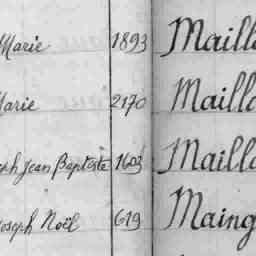 Marie 1893 Mailla
Marie 2170 Mailla
ph Jean Baptiste 1603 Mailla
oseph Noël 619 Maing